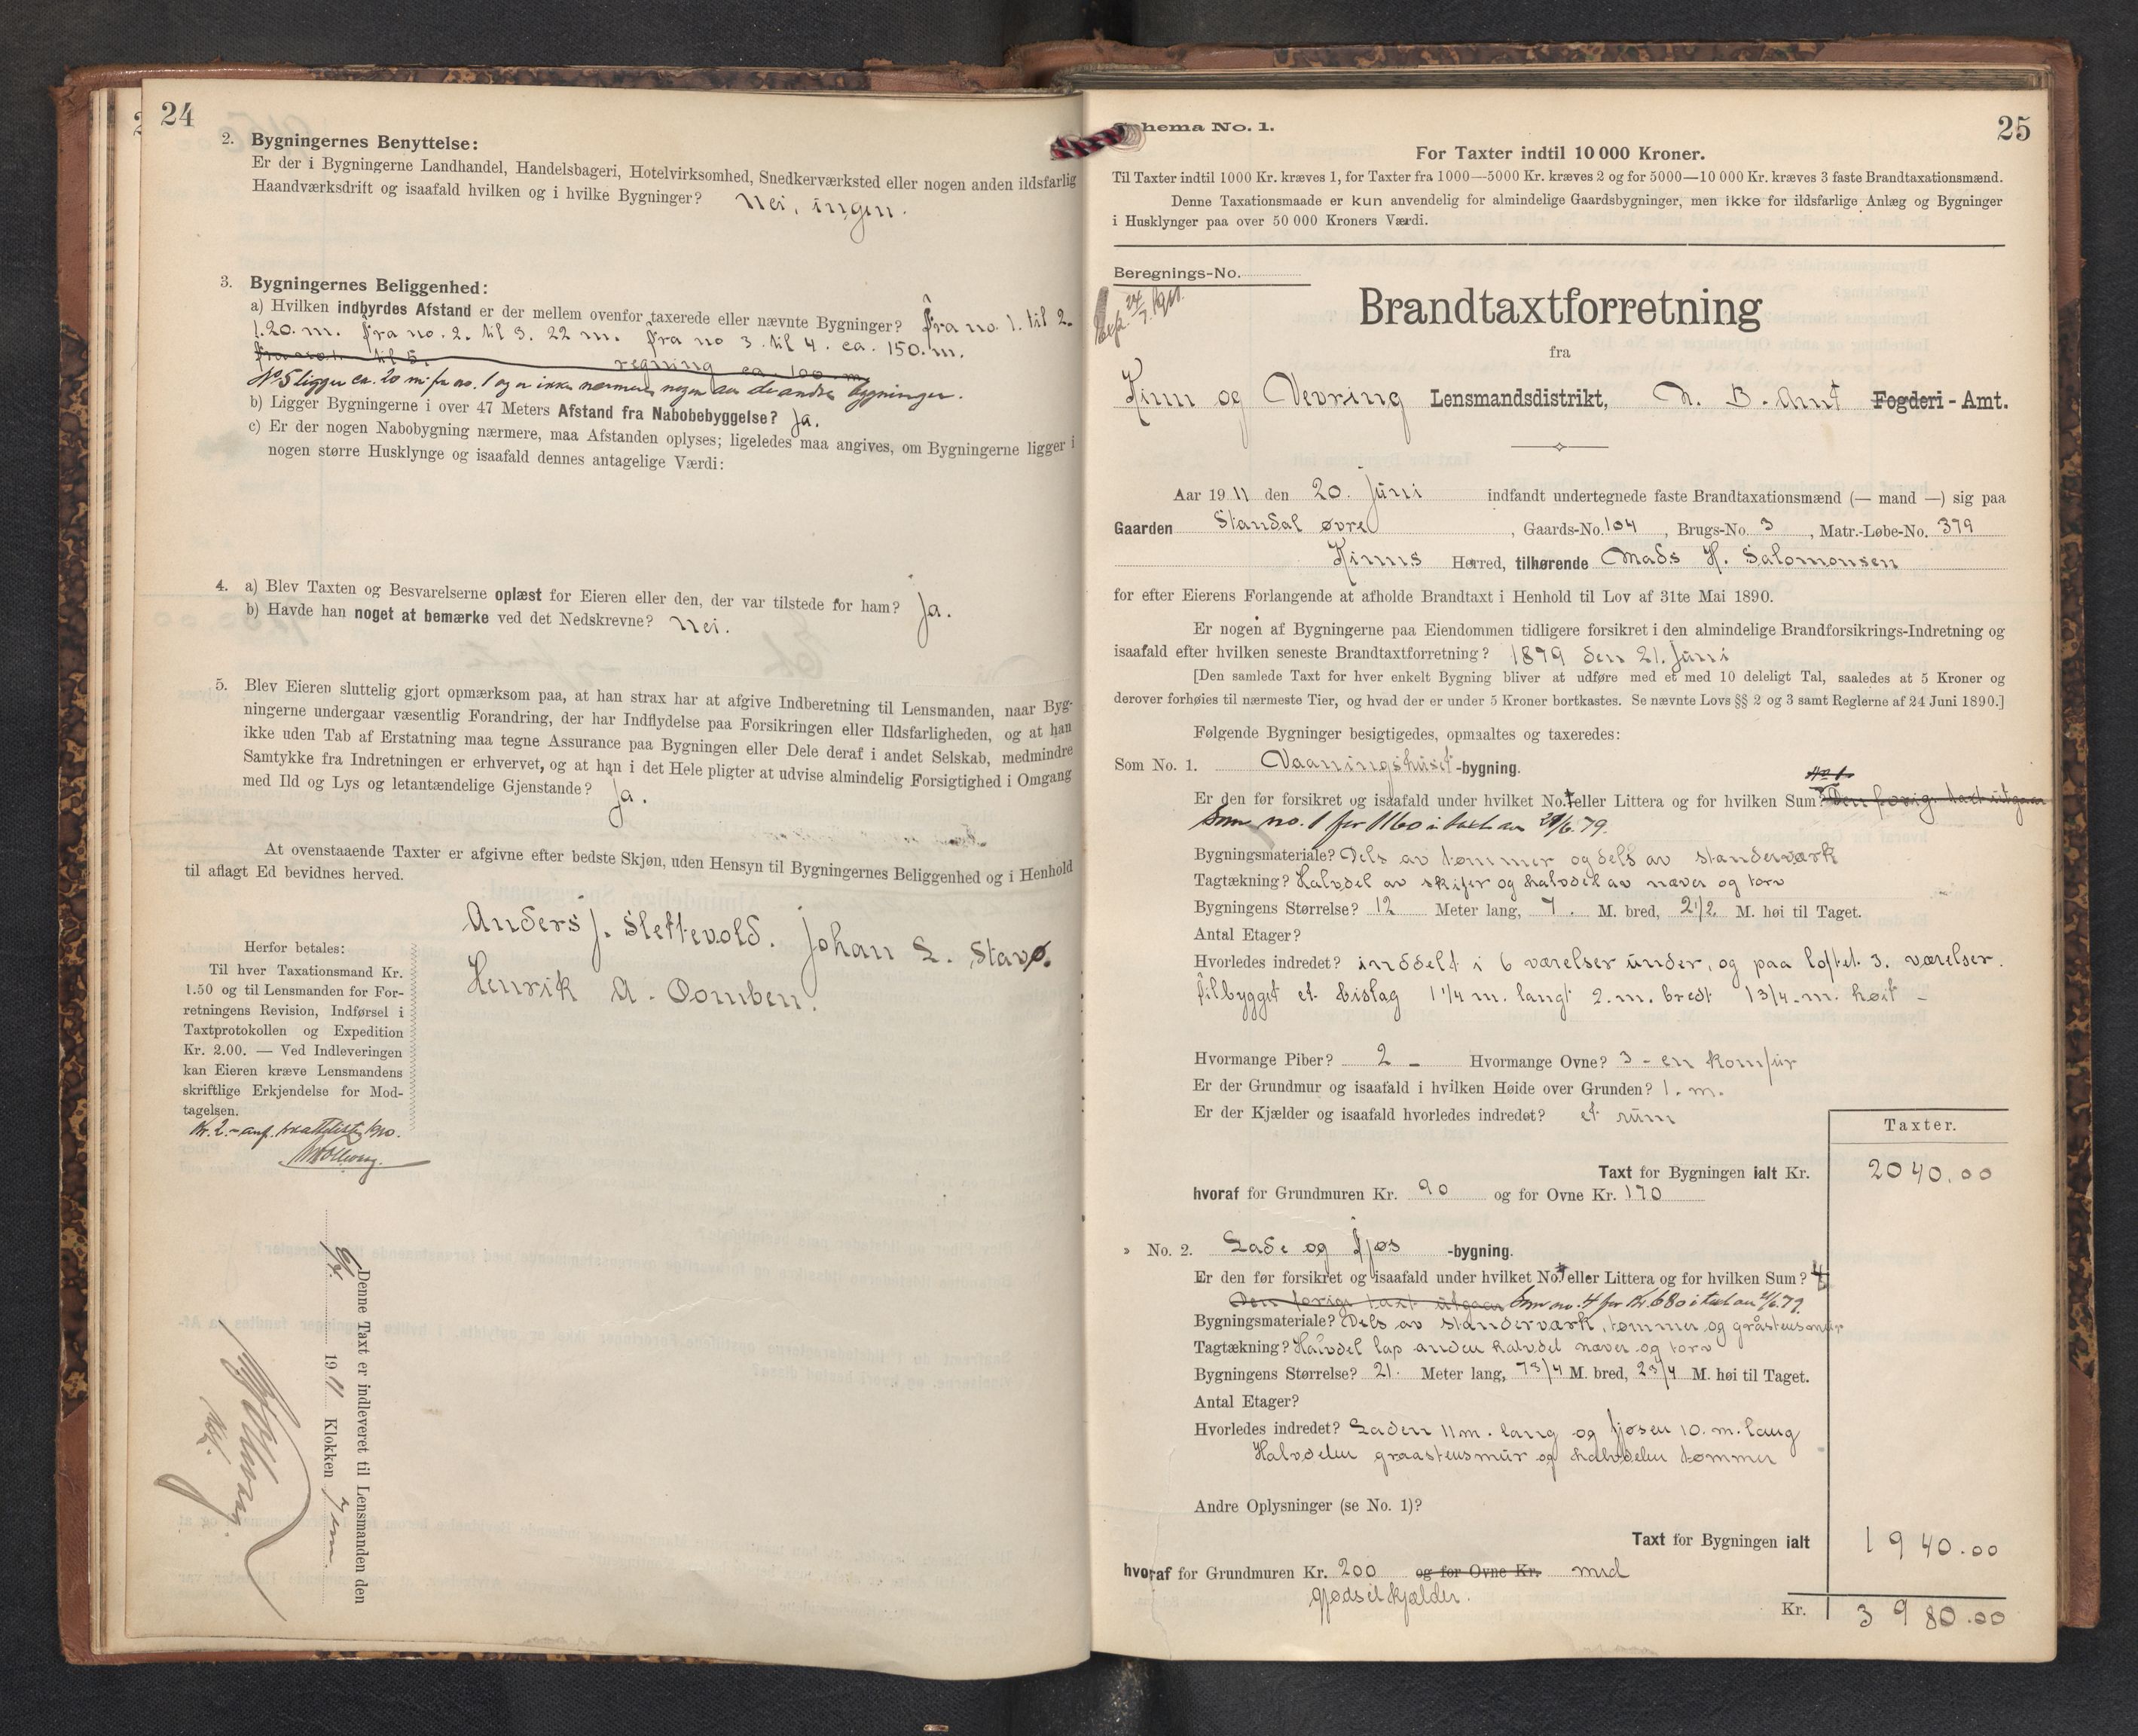 24
2. Bygningernes Benyttelse:
Er der i Bygningerne Landhandel, Handelsbageri, Hotelvirksomhed, Snedkerværksted eller nogen anden ildsfarlig
Haandværksdrift og isaafald hvilken og i hvilke Bygninger? Nei, ingen.
3. Bygningernes Beliggenhed:
a) Hvilken indbyrdes Afstand er der mellem ovenfor taxerede eller nævnte Bygninger? Fra no. 1. til 2.
1.20. m. fra no. 2. til 3. 22 m. fra no 3 til 4. ca. 150. m.
fra no. 1. til 5. regning ca. 100 m.
No. 5 ligger ca. 20 m. fra no. 1 og er ikke nærmere nogen av de andre bygninger.
b) Ligger Bygningerne i over 47 Meters Afstand fra Nabobebyggelse? Ja.
c) Er der nogen Nabobygning nærmere, maa Afstanden oplyses; ligeledes maa angives, om Bygningerne ligger i
nogen større Husklynge og isaafald dennes antagelige Værdi:
4. a) Blev Taxten og Besvarelserne oplæst for Eieren eller den, der var tilstede for ham? Ja.
b) Havde han noget at bemærke ved det Nedskrevne? Nei.
5. Blev Eieren sluttelig gjort opmærksom paa, at han strax har at afgive Indberetning til Lensmanden, naar Byg-
ningerne undergaar væsentlig Forandring, der har Indflydelse paa Forsikringen eller Ildsfarligheden, og at han
ikke uden Tab af Erstatning maa tegne Assurance paa Bygningen eller Dele deraf i andet Selskab, medmindre
Samtykke fra Indretningen er erhvervet, og at han i det Hele pligter at udvise almindelig Forsigtighed i Omgang
med Ild og Lys og letantændelige Gjenstande? Ja.
At ovenstaaende Taxter er afgivne efter bedste Skjøn, uden Hensyn til Bygningernes Beliggenhed og i Henhold
til aflagt Ed bevidnes herved.
Anders J. Slettevold. Johan L. Stavø.
Henrik A. Domben.
Herfor betales:
Til hver Taxationsmand Kr.
1.50 og til Lensmanden for For-
retningens Revision, Indførsel i
Taxtprotokollen og Expedition
Kr. 2.00. — Ved Indleveringen
kan Eieren kræve Lensmandens
skriftlige Erkjendelse for Mod-
tagelsen.
Kr. 2.-
Denne Taxt er indleveret til Lensmanden den
1911 Klokken 7 em.
25
Schema No. 1.
For Taxter indtil 10 000 Kroner.
Til Taxter indtil 1000 Kr. kræves 1, for Taxter fra 1000—5000 Kr. kræves 2 og for 5000—10 000 Kr. kræves 3 faste Brandtaxationsmænd.
Denne Taxationsmaade er kun anvendelig for almindelige Gaardsbygninger, men ikke for ildsfarlige Anlæg og Bygninger
i Husklynger paa over 50 000 Kroners Værdi.
Beregnings-No.
Exp. 24/7. 1911.
Brandtaxtforretning
fra
Kinn og Vevring Lensmandsdistrikt, N. B. Amt Fogderi - Amt.
Aar 1911 den 20. Juni indfandt undertegnede faste Brandtaxationsmænd (— mand —) sig paa
Gaarden Standal øvre, Gaards-No. 104, Brugs-No. 3, Matr.-Løbe-No. 379
Kinns Herred, tilhørende Mads H. Salomonsen
for efter Eierens Forlangende at afholde Brandtaxt i Henhold til Lov af 31te Mai 1890.
Er nogen af Bygningerne paa Eiendommen tidligere forsikret i den almindelige Brandforsikrings-Indretning og
isaafald efter hvilken seneste Brandtaxtforretning? 1879 den 21. Juni
[Den samlede Taxt for hver enkelt Bygning bliver at udføre med et med 10 deleligt Tal, saaledes at 5 Kroner og
derover forhøies til nærmeste Tier, og hvad der er under 5 Kroner bortkastes. Se nævnte Lovs §§ 2 og 3 samt Reglerne af 24 Juni 1890.]
Følgende Bygninger besigtigedes, opmaaltes og taxeredes:
Som No. 1. Vaaningshuset -bygning.
No 1.
Er den før forsikret og isaafald under hvilket No. eller Littera og for hvilken Sum? Den forige taxt utgaar
Som no. 1 for 1160 i taxt av 21/6. 79.
Bygningsmateriale? Dels av tømmer og dels av standerværk
Tagtækning? Halvdel av skifer og halvdel av næver og torv
Bygningens Størrelse? 12 Meter lang, 7. M. bred, 2 1/2 M. høi til Taget.
Antal Etager?
Hvorledes indredet? inddelt i 6 værelser under, og paa loftet 3. værelser.
Tilbygget et bislag 1 1/4 m. langt 2. m. bredt 1 3/4 m. høit -
Hvormange Piber? 2 - Hvormange Ovne? 3 - en komfur
Er der Grundmur og isaafald i hvilken Høide over Grunden? 1. m.
Er der Kjælder og isaafald hvorledes indredet? et rum
Taxter.
Taxt for Bygningen ialt Kr. 2040.00
hvoraf for Grundmuren Kr. 90 og for Ovne Kr. 170
» No. 2. Lade og fjøs -bygning.
Er den før forsikret og isaafald under hvilket No. eller Littera og for hvilken Sum? 4
Den forige taxt utgaar Som no. 4 for Kr 680 i taxt av 21/6. 79.
Bygningsmateriale? Dels av standerværk, tømmer og gråstensmur
Tagtækning? Halvdel lap anden halvdel næver og torv
Bygningens Størrelse? 21. Meter lang, 7 3/4 M. bred, 2 3/4 M. høi til Taget.
Antal Etager?
Hvorledes indredet? Laden 11 m. lang og fjøsen 10. m. lang
Halvdelen graastensmur og halvdelen tømmer
Andre Oplysninger (se No. 1)?
Taxt for Bygningen ialt 1940.00
hvoraf for Grundmuren Kr. 200 og for Ovne Kr. med
gjødselkjælder.
Kr. 3980.00